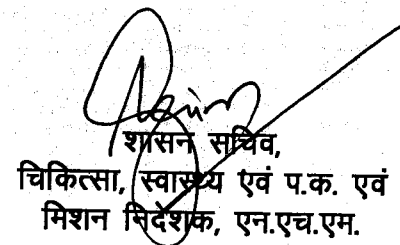 शासन सचिव,
चिकित्सा, स्वास्थ्य एवं प.क. एवं
मिशन निदेशक, एन.एच.एम.